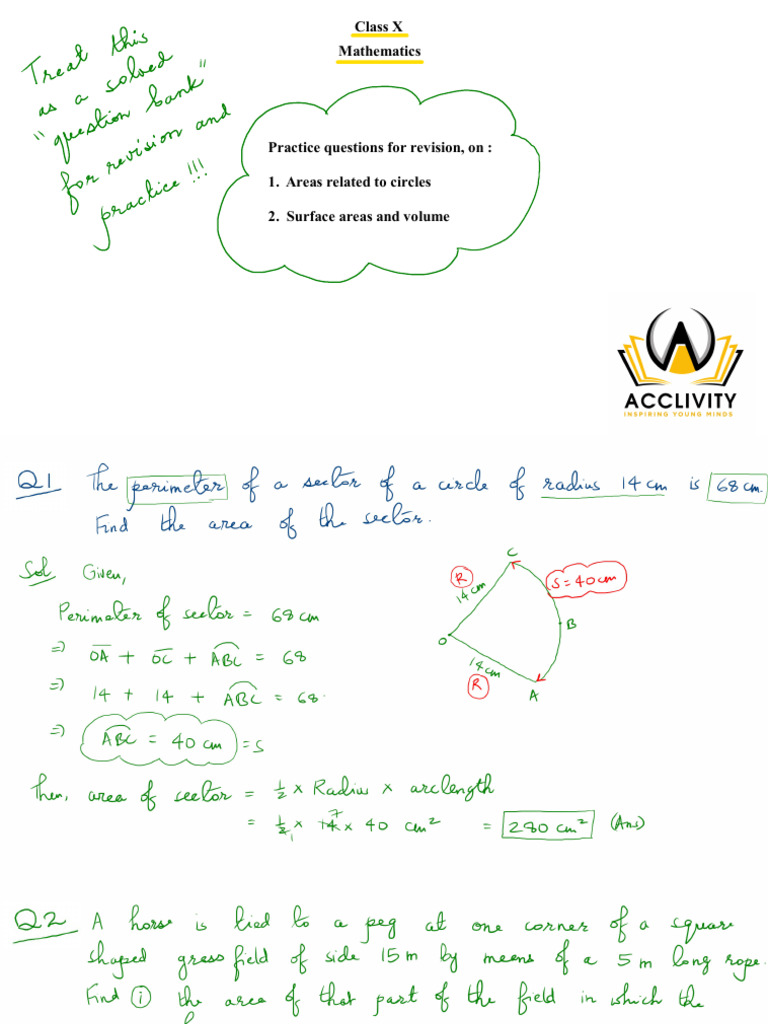 Class X
Mathematics
Treat this
as a solved
"question bank"
for revision and
practice!!!
Practice questions for revision, on :
1. Areas related to circles
2. Surface areas and volume
ACCLIVITY
INSPIRING YOUNG MINDS
Q1 The perimeter of a sector of a circle of radius 14 cm is 68 cm.
Find the area of the sector.
Sol Given,
Perimeter of sector = 68 cm
⇒ OA + OC + ABC = 68
⇒ 14 + 14 + ABC = 68.
⇒ ABC = 40 cm = S
C
R
14 cm
S = 40 cm
B
O
14 cm
R
A
Then, area of sector = 1/2 × Radius × arclength
= 1/2 × 14 × 40 cm² = 280 cm² (Ans)
7
1
Q2 A horse is tied to a peg at one corner of a square
shaped grass field of side 15 m by means of a 5 m long rope.
Find (i) the area of that part of the field in which the